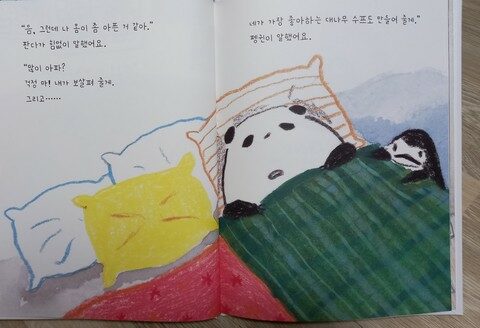 “음, 그런데 나 몸이 좀 아픈 거 같아.”
판다가 힘없이 말했어요.
“많이 아파?
걱정 마! 내가 보살펴 줄게.
그리고……
네가 가장 좋아하는 대나무 수프도 만들어 줄게.”
펭귄이 말했어요.